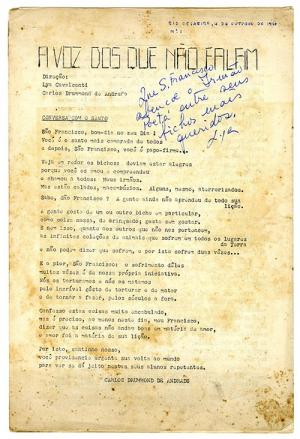 RIO DE JANEIRO, 4 DE OUTUBRO DE
Nº:
A VOZ DOS QUE NÃO FALAM
Direção:
Lya Cavalcanti
Carlos Drummond de Andrade
Que S. Francisco
abençoe o Irmão
entre seus
bichos mais
queridos.
Lya
CONVERSA COM O SANTO
São Francisco, bom-dia no seu Dia!
Você é o santo mais camarada de todos
e depois, São Francisco, você é
Veja em redor os bichos: deviam estar alegres
porque você os amou e compreendeu
e chamou a todos: Meus irmãos.
Mas estão calados, macambúzios. Alguns, mesmo, aterrorizados.
Sabe, São Francisco? A gente ainda não aprendeu de todo sua
lição.
A gente gosta de um ou outro bicho em particular,
como coisa nossa, de brinquedo; gosta sem gostar.
E nem isso, quanto aos outros que não nos pertencem,
as infinitas coleções de animais que sofrem em todos os lugares
da Terra
e não podem dizer que sofrem, e por isto sofrem duas vezes...
E o pior, São Francisco: o sofrimento dêles
muitas vêzes é da nossa própria iniciativa.
Nós os torturamos e nós os matamos
pelo incrível gôsto de torturar e de matar
e de tornar a fazê, pelos séculos a fora.
Confesso estas coisas muito encabulado,
mas é preciso, ao menos neste dia, meu Francisco,
dizer que ainda não andamos bons em matéria de amor,
e amor foi a matéria de sua lição.
Por isto, santinho nosso,
você providencie urgente sua volta ao mundo
para ver se dá jeito nestes seus alunos repetentes.
CARLOS DRUMMOND DE ANDRADE